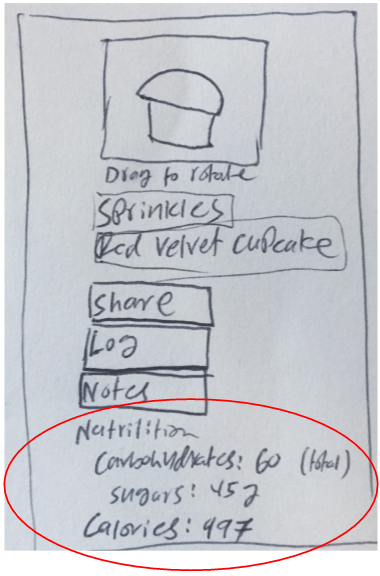 Drag to rotate
Sprinkles
Red velvet cupcake
share
Log
Notes
Nutrilition
Carbohydrates: 60 (total)
sugars: 45g
Calories: 497